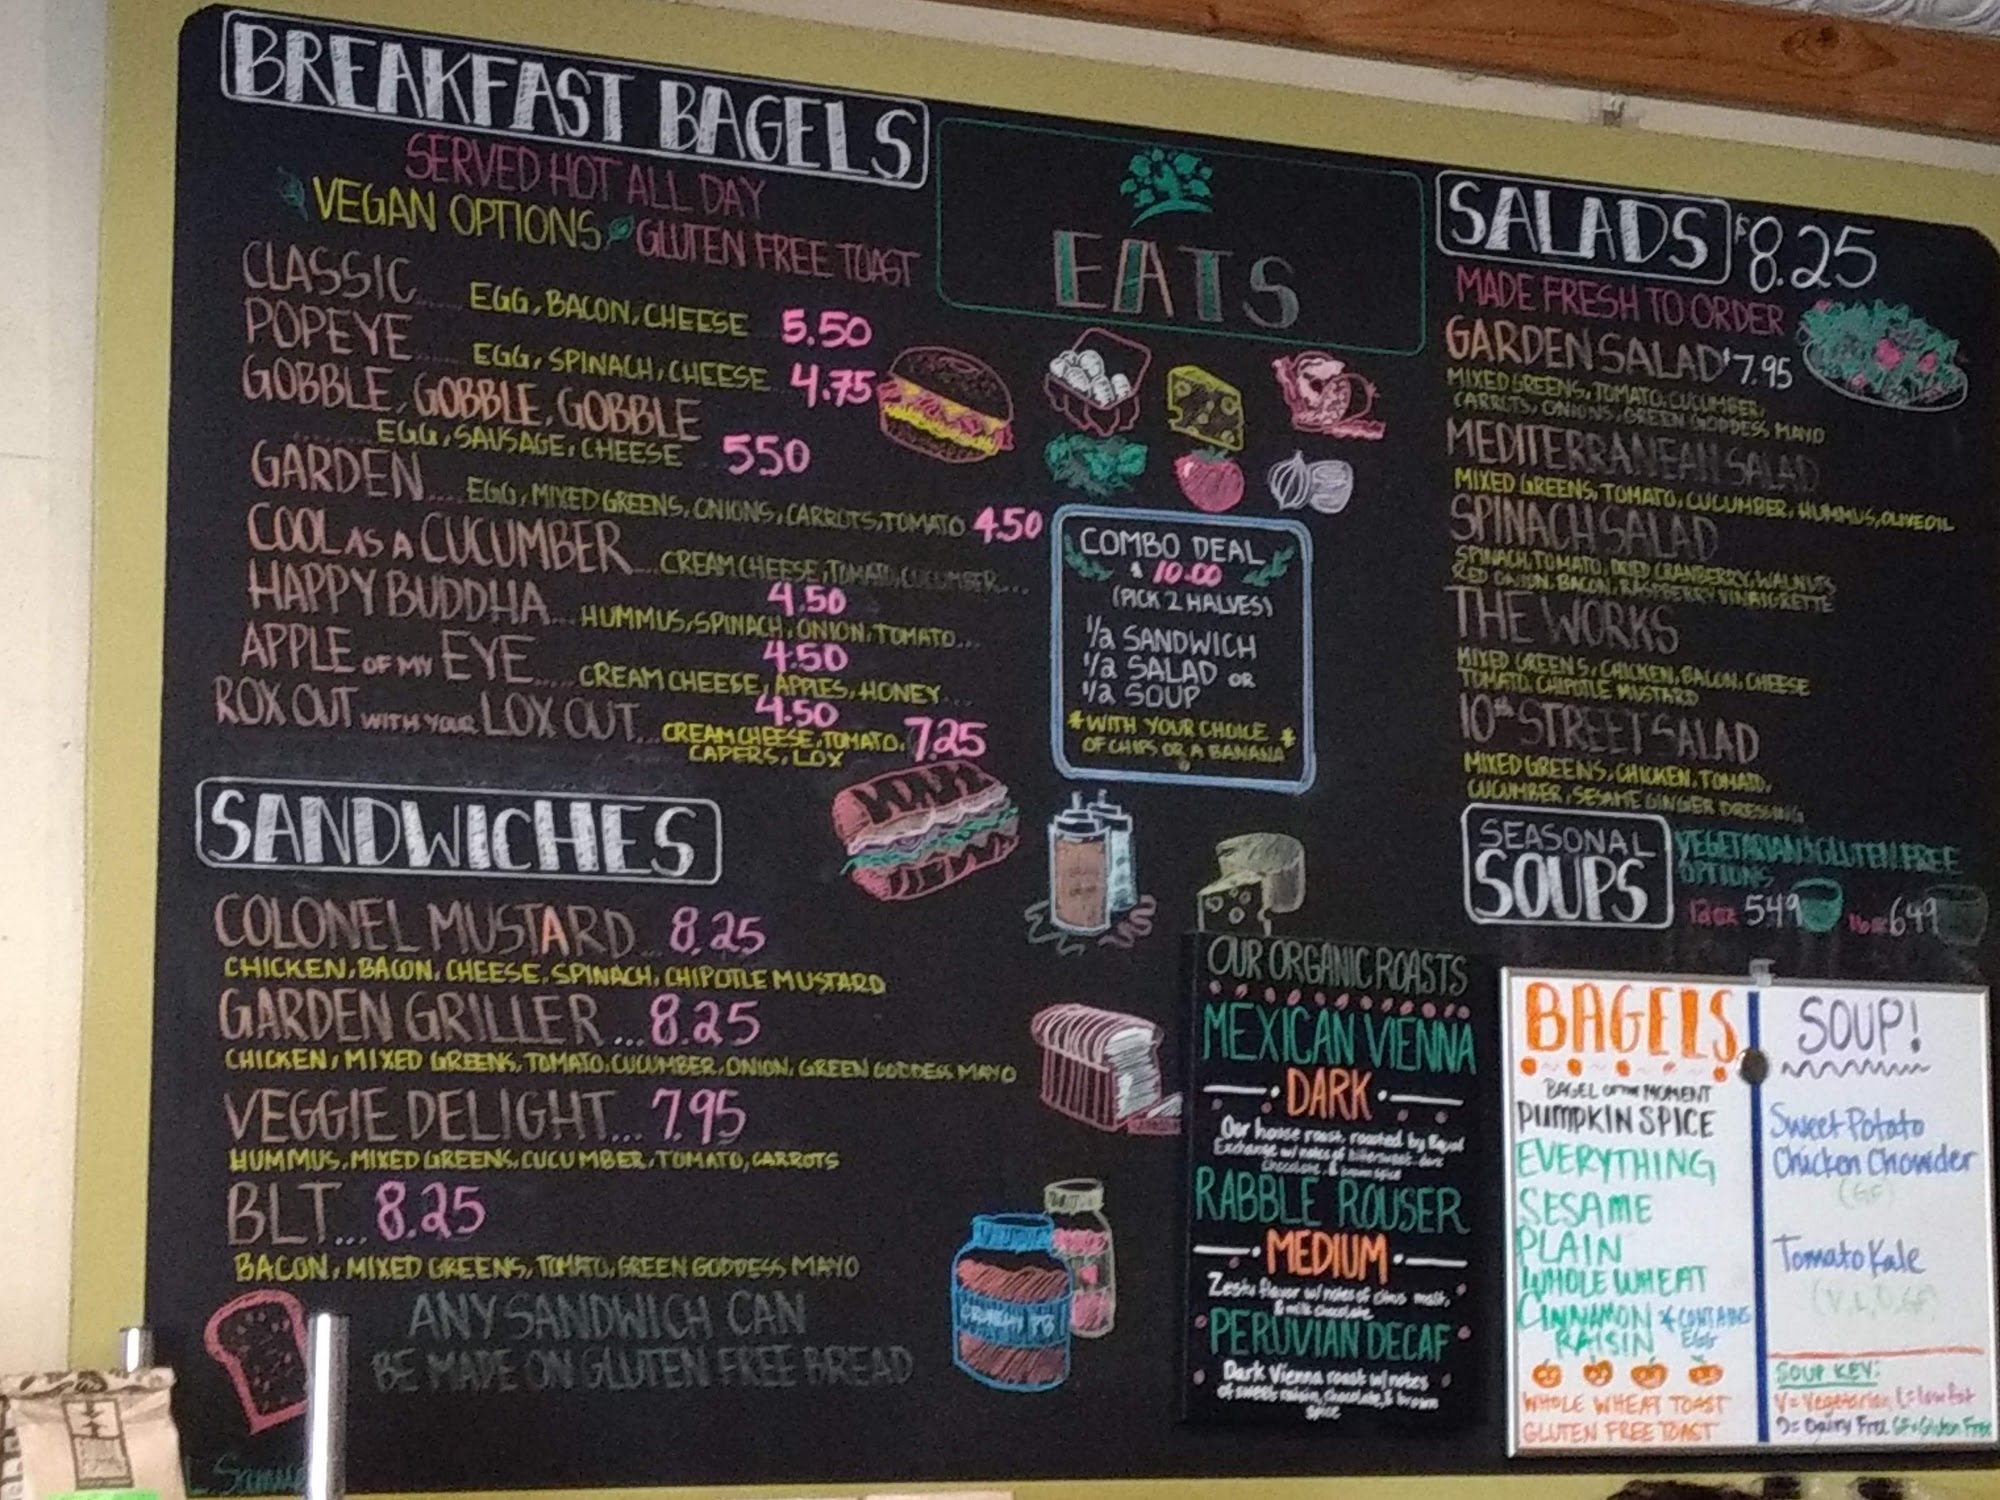 BREAKFAST BAGELS
SERVED HOT ALL DAY
VEGAN OPTIONS GLUTEN FREE TOAST
CLASSIC.... EGG, BACON, CHEESE 5.50
POPEYE..... EGG, SPINACH, CHEESE 4.75
GOBBLE, GOBBLE, GOBBLE
........EGG, SAUSAGE, CHEESE 550
GARDEN.... EGG, MIXED GREENS, ONIONS, CARROTS, TOMATO 4.50
COOL AS A CUCUMBER... CREAM CHEESE, TOMATO, CUCUMBER...
4.50
HAPPY BUDDHA... HUMMUS, SPINACH, ONION, TOMATO...
4.50
APPLE OF MY EYE..... CREAM CHEESE, APPLES, HONEY...
4.50
ROX OUT WITH YOUR LOX OUT... CREAM CHEESE, TOMATO, 7.25
CAPERS, LOX
SANDWICHES
COLONEL MUSTARD... 8.25
CHICKEN, BACON, CHEESE, SPINACH, CHIPOTLE MUSTARD
GARDEN GRILLER ...8.25
CHICKEN, MIXED GREENS, TOMATO, CUCUMBER, ONION, GREEN GODDESS MAYO
VEGGIE DELIGHT... 7.95
HUMMUS, MIXED GREENS, CUCUMBER, TOMATO, CARROTS
BLT... 8.25
BACON, MIXED GREENS, TOMATO, GREEN GODDESS MAYO
ANY SANDWICH CAN
BE MADE ON GLUTEN FREE BREAD
EATS
COMBO DEAL
$ 10.00
(PICK 2 HALVES)
1/2 SANDWICH
1/2 SALAD OR
1/2 SOUP
*WITH YOUR CHOICE *
OF CHIPS OR A BANANA
OUR ORGANIC ROASTS
MEXICAN VIENNA
DARK
Our house roast, roasted by Equal
Exchange w/ notes of bittersweet dark
chocolate & brown spice
RABBLE ROUSER
MEDIUM
Zesty flavor w/ notes of citrus malt,
& milk chocolate
PERUVIAN DECAF
Dark Vienna roast w/ notes
of sweet raisin, chocolate, & brown
spice
SALADS $8.25
MADE FRESH TO ORDER
GARDEN SALAD $7.95
MIXED GREENS, TOMATO, CUCUMBER,
CARROTS, ONIONS, GREEN GODDESS MAYO
MEDITERRANEAN SALAD
MIXED GREENS, TOMATO, CUCUMBER, HUMMUS, OLIVE OIL
SPINACH SALAD
SPINACH, TOMATO, DRIED CRANBERRY, WALNUTS
RED ONION, BACON, RASPBERRY VINAIGRETTE
THE WORKS
MIXED GREENS, CHICKEN, BACON, CHEESE
TOMATO, CHIPOTLE MUSTARD
10th STREET SALAD
MIXED GREENS, CHICKEN, TOMATO,
CUCUMBER, SESAME GINGER DRESSING
SEASONAL
SOUPS
VEGETARIAN & GLUTEN FREE
OPTIONS
12oz 549 16oz 649
BAGELS
BAGEL OF THE MOMENT
PUMPKIN SPICE
EVERYTHING
SESAME
PLAIN
WHOLE WHEAT
CINNAMON *CONTAINS
RAISIN EGG
WHOLE WHEAT TOAST
GLUTEN FREE TOAST
SOUP!
Sweet Potato
Chicken Chowder
(GF)
Tomato Kale
(V, L, D, GF)
SOUP KEY:
V= Vegetarian L= low fat
D= Dairy Free GF=Gluten Free